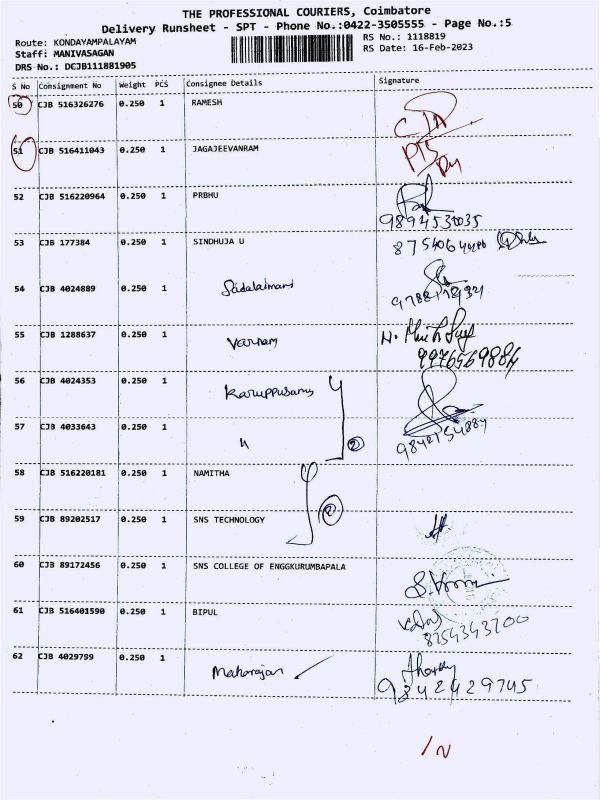 THE PROFESSIONAL COURIERS, Coimbatore
Delivery Runsheet - SPT - Phone No.:0422-3505555 - Page No.:5
Route: KONDAYAMPALAYAM
RS No.: 1118819
Staff: MANIVASAGAN
RS Date: 16-Feb-2023
DRS No.: DCJB111881905
S No Consignment No Weight PCS Consignee Details Signature
50 CJB 516326276 0.250 1 RAMESH
51 CJB 516411043 0.250 1 JAGAJEEVANRAM
52 CJB 516220964 0.250 1 PRBHU
9894530035
53 CJB 177384 0.250 1 SINDHUJA U
54 CJB 4024889 0.250 1 Sadalaimani
55 CJB 1288637 0.250 1 Varnam
9976569884
56 CJB 4024353 0.250 1 Karuppusamy
57 CJB 4033643 0.250 1 "
2
58 CJB 516220181 0.250 1 NAMITHA
2
59 CJB 89202517 0.250 1 SNS TECHNOLOGY
60 CJB 89172456 0.250 1 SNS COLLEGE OF ENGGKURUMBAPALA
61 CJB 516401590 0.250 1 BIPUL
8754343700
62 CJB 4029799 0.250 1 Maharajan
9842429745